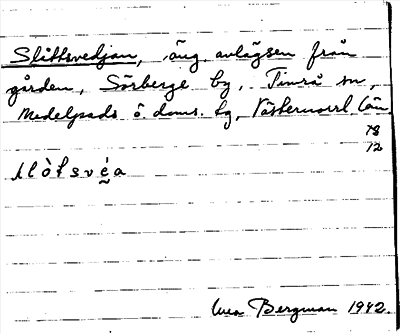 Slåttsvedjan, äng avlägsen från
gården, Sörberge by, Timrå sn,
Medelpads ö. doms. tg, Västernorrl. län
78
72
Ewa Bergman 1942.